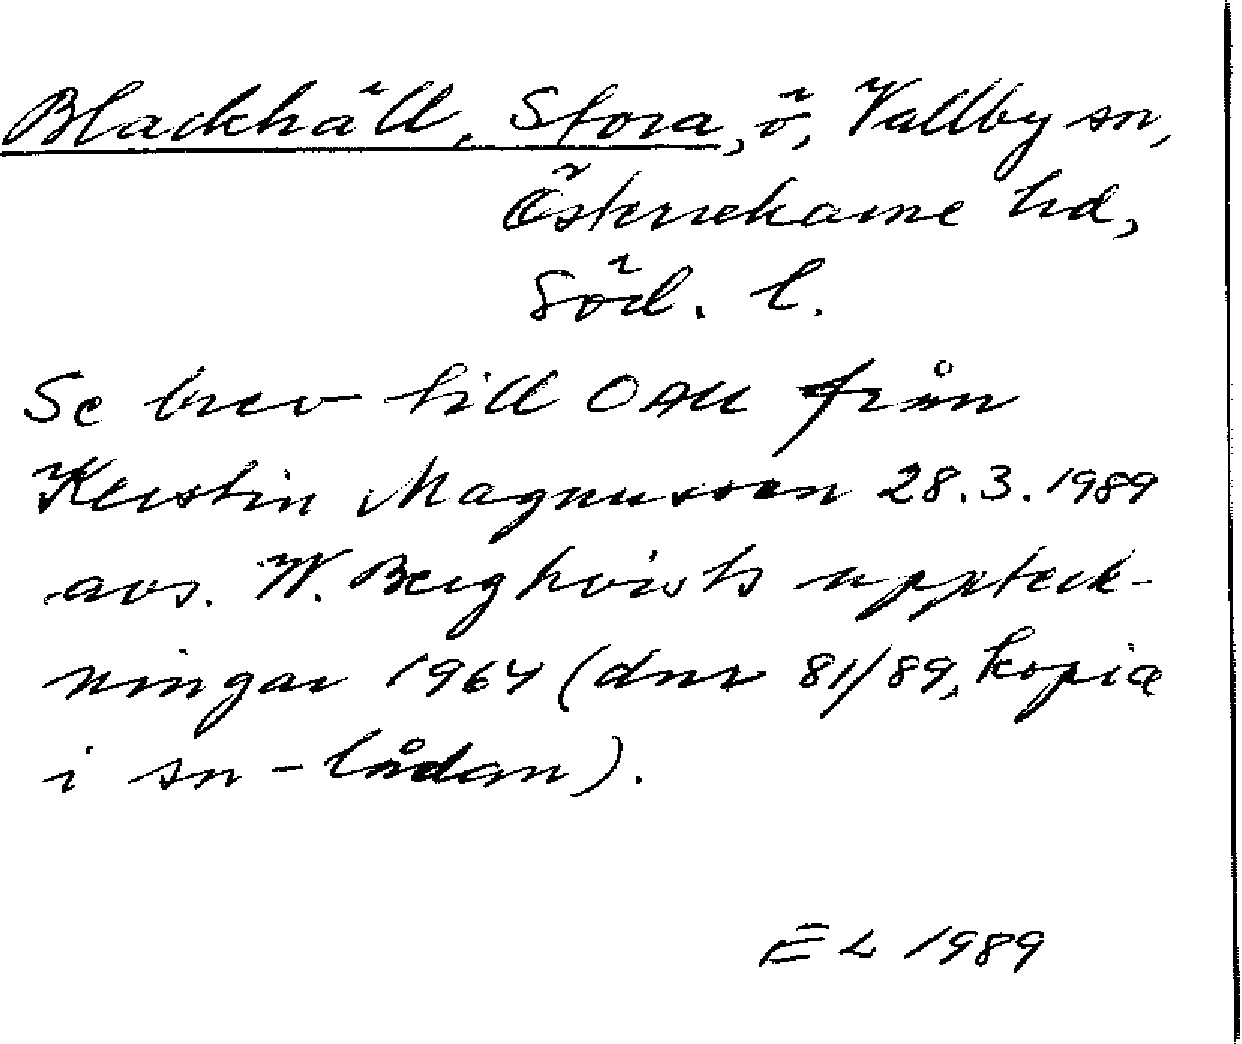 Blackhäll, Stora, ö, Vallby sn,
Österrekarne hd,
Söd. l.
Se brev till OAU från
Kerstin Magnusson 28.3.1989
avs. W. Bergkvists uppteck-
ningar 1964 (dnr 81/89, kopia
i sn-lådan).
EL 1989